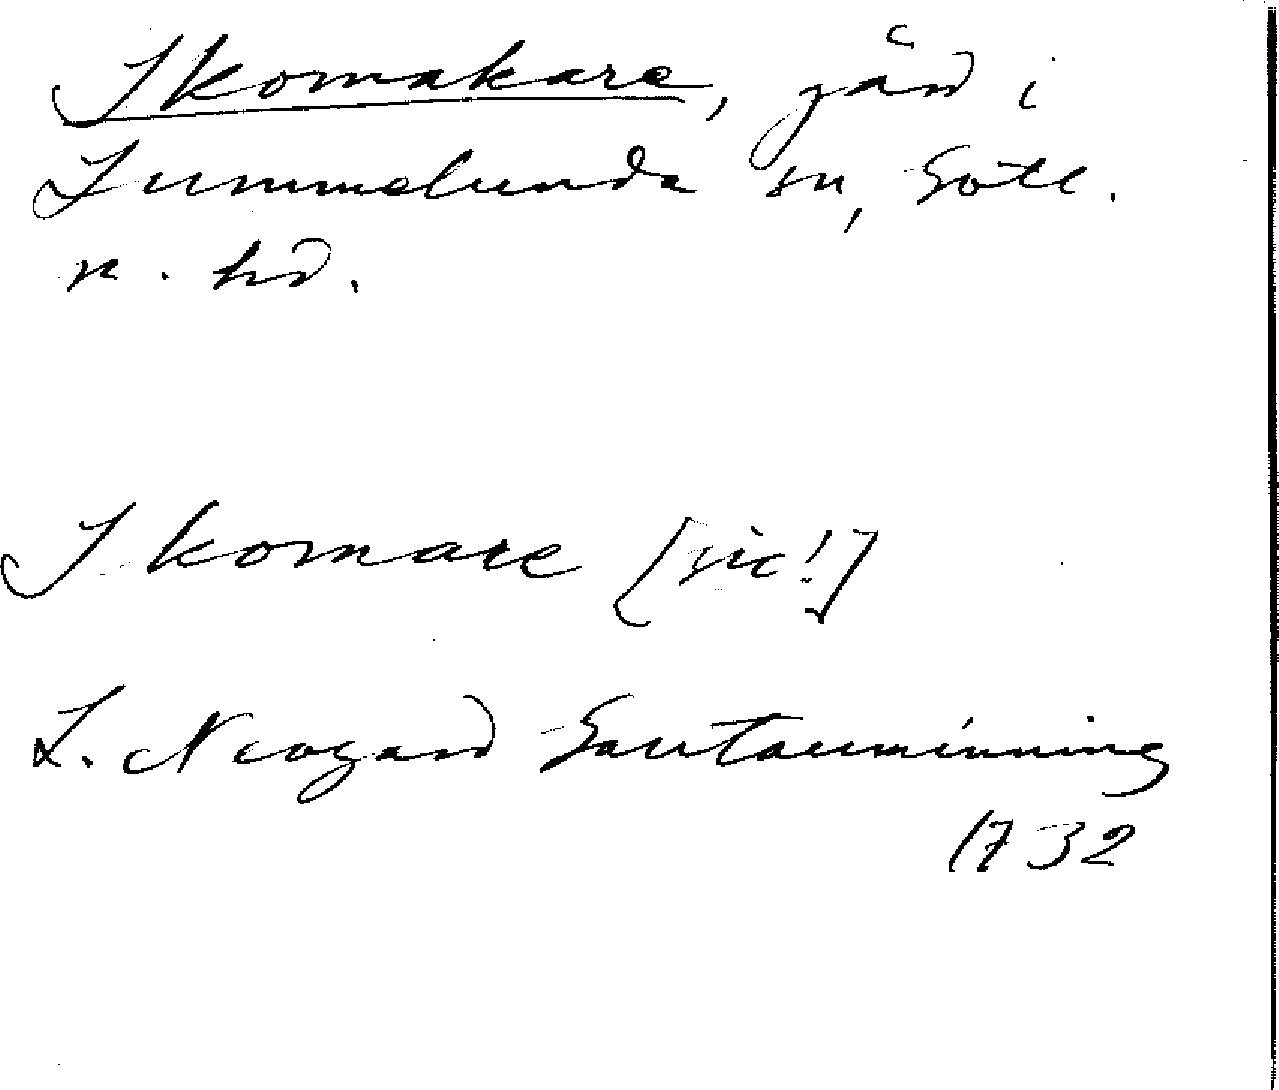 Skomakare, gård i
Lummelunda sn, Gotl.
n. hd.
Skomare [sic!]
L. Neogard Gautauminning
1732